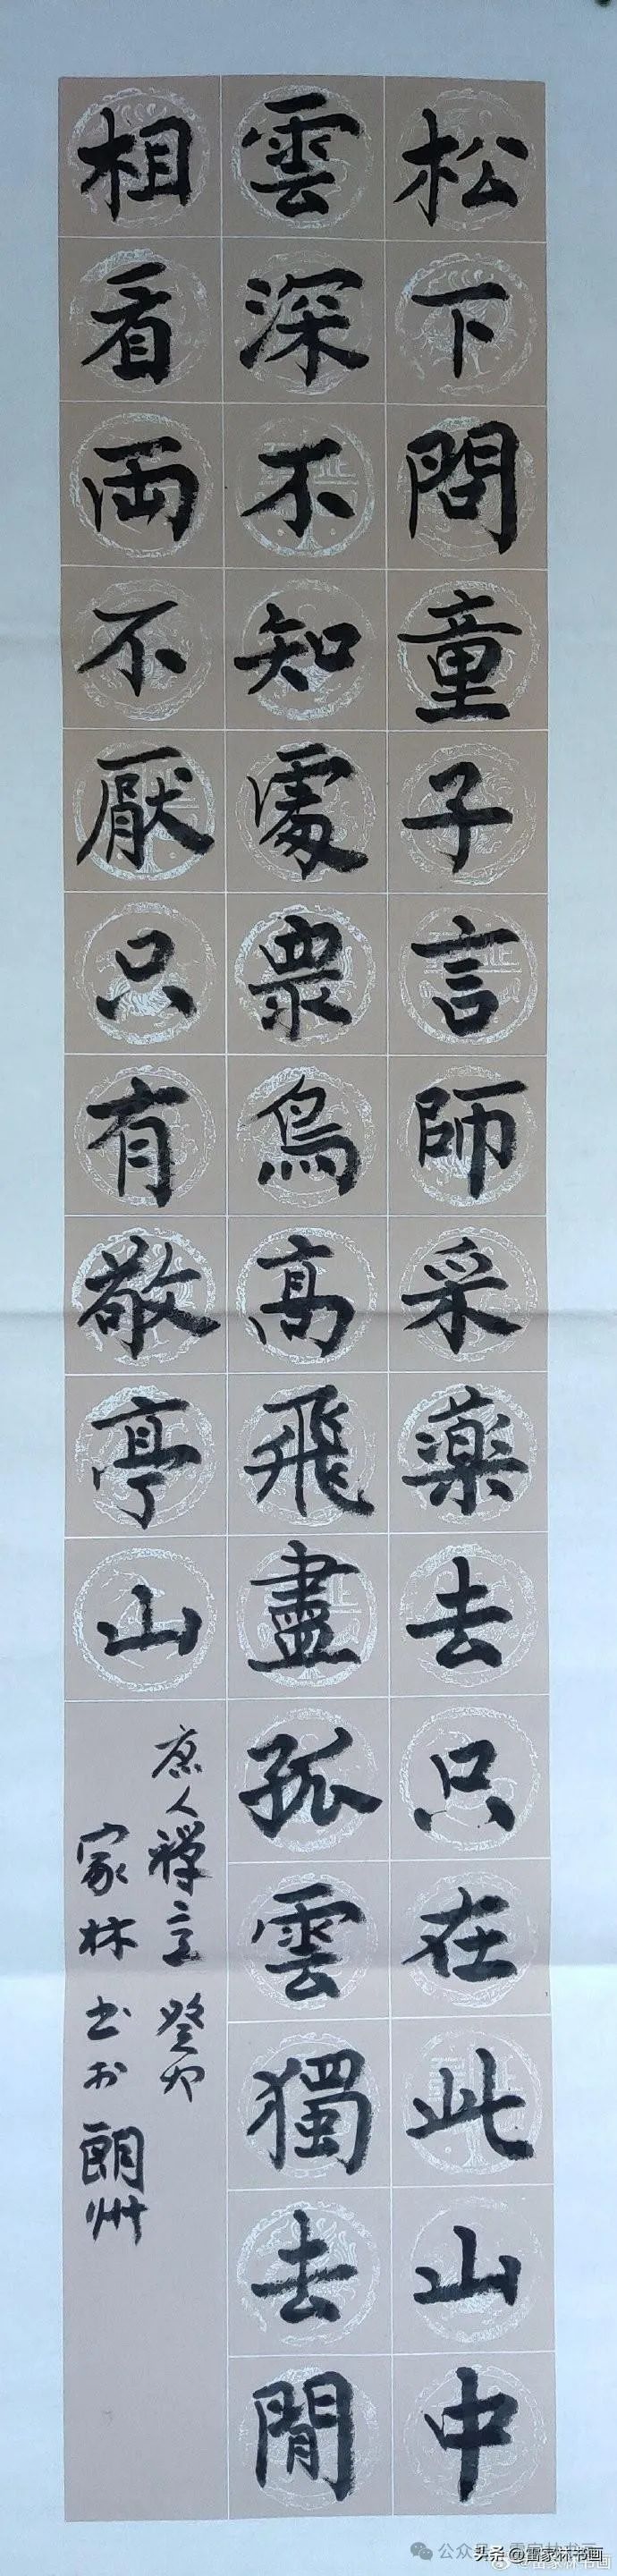 松下問童子言師采薬去只在此山中
雲深不知處眾鳥高飛盡孤雲獨去閒
相看両不厭只有敬亭山
唐人禅意 癸卯
家林书於朗州
头条 @雷家林书画
公众号·雷家林书画
@雷家林书画